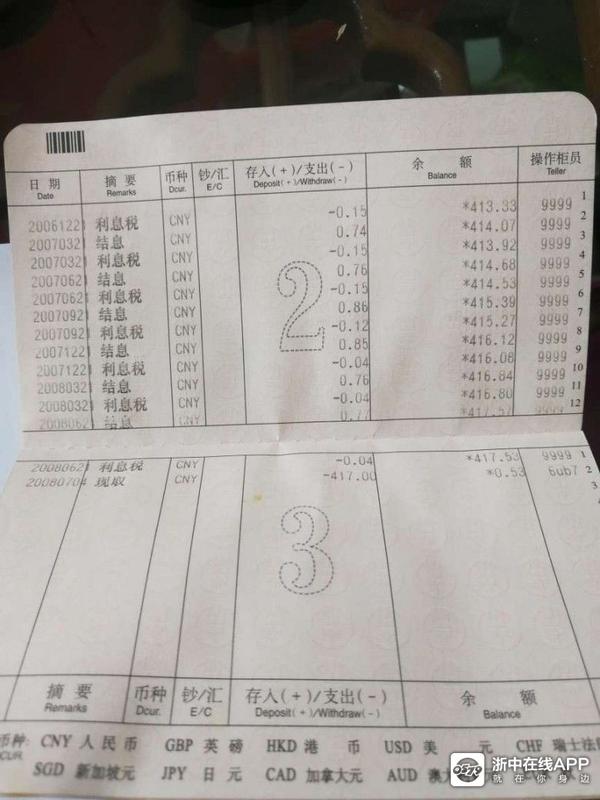 日期 摘要 币种 钞/汇 存入(+)/支出(-) 余额 操作柜员
Date Remarks Dcur. E/C Deposit(+)/Withdraw(-) Balance Teller
20061221 利息税 CNY -0.15 *413.33 9999 1
20070321 结息 CNY 0.74 *414.07 9999 2
20070321 利息税 CNY -0.15 *413.92 9999 3
20070621 结息 CNY 0.76 *414.68 9999 4
20070621 利息税 CNY -0.15 *414.53 9999 5
20070921 结息 CNY 0.86 *415.39 9999 6
20070921 利息税 CNY -0.12 *415.27 9999 7
20071221 结息 CNY 0.85 *416.12 9999 8
20071221 利息税 CNY -0.04 *416.08 9999 9
20080321 结息 CNY 0.76 *416.84 9999 10
20080321 利息税 CNY -0.04 *416.80 9999 11
20080621 结息 CNY 0.77 *417.57 9999 12
2
20080621 利息税 CNY -0.04 *417.53 9999 1
20080704 现取 CNY -417.00 *0.53 6ub7 2
3
3
摘要 币种 钞/汇 存入(+)/支出(-) 余额
Remarks Dcur. E/C Deposit(+)/Withdraw(-) Balance
币种: CNY 人民币 GBP 英磅 HKD 港币 USD 美元 CHF 瑞士法
CUR. SGD 新加坡元 JPY 日元 CAD 加拿大元 AUD 澳
浙中在线APP
就在你身边